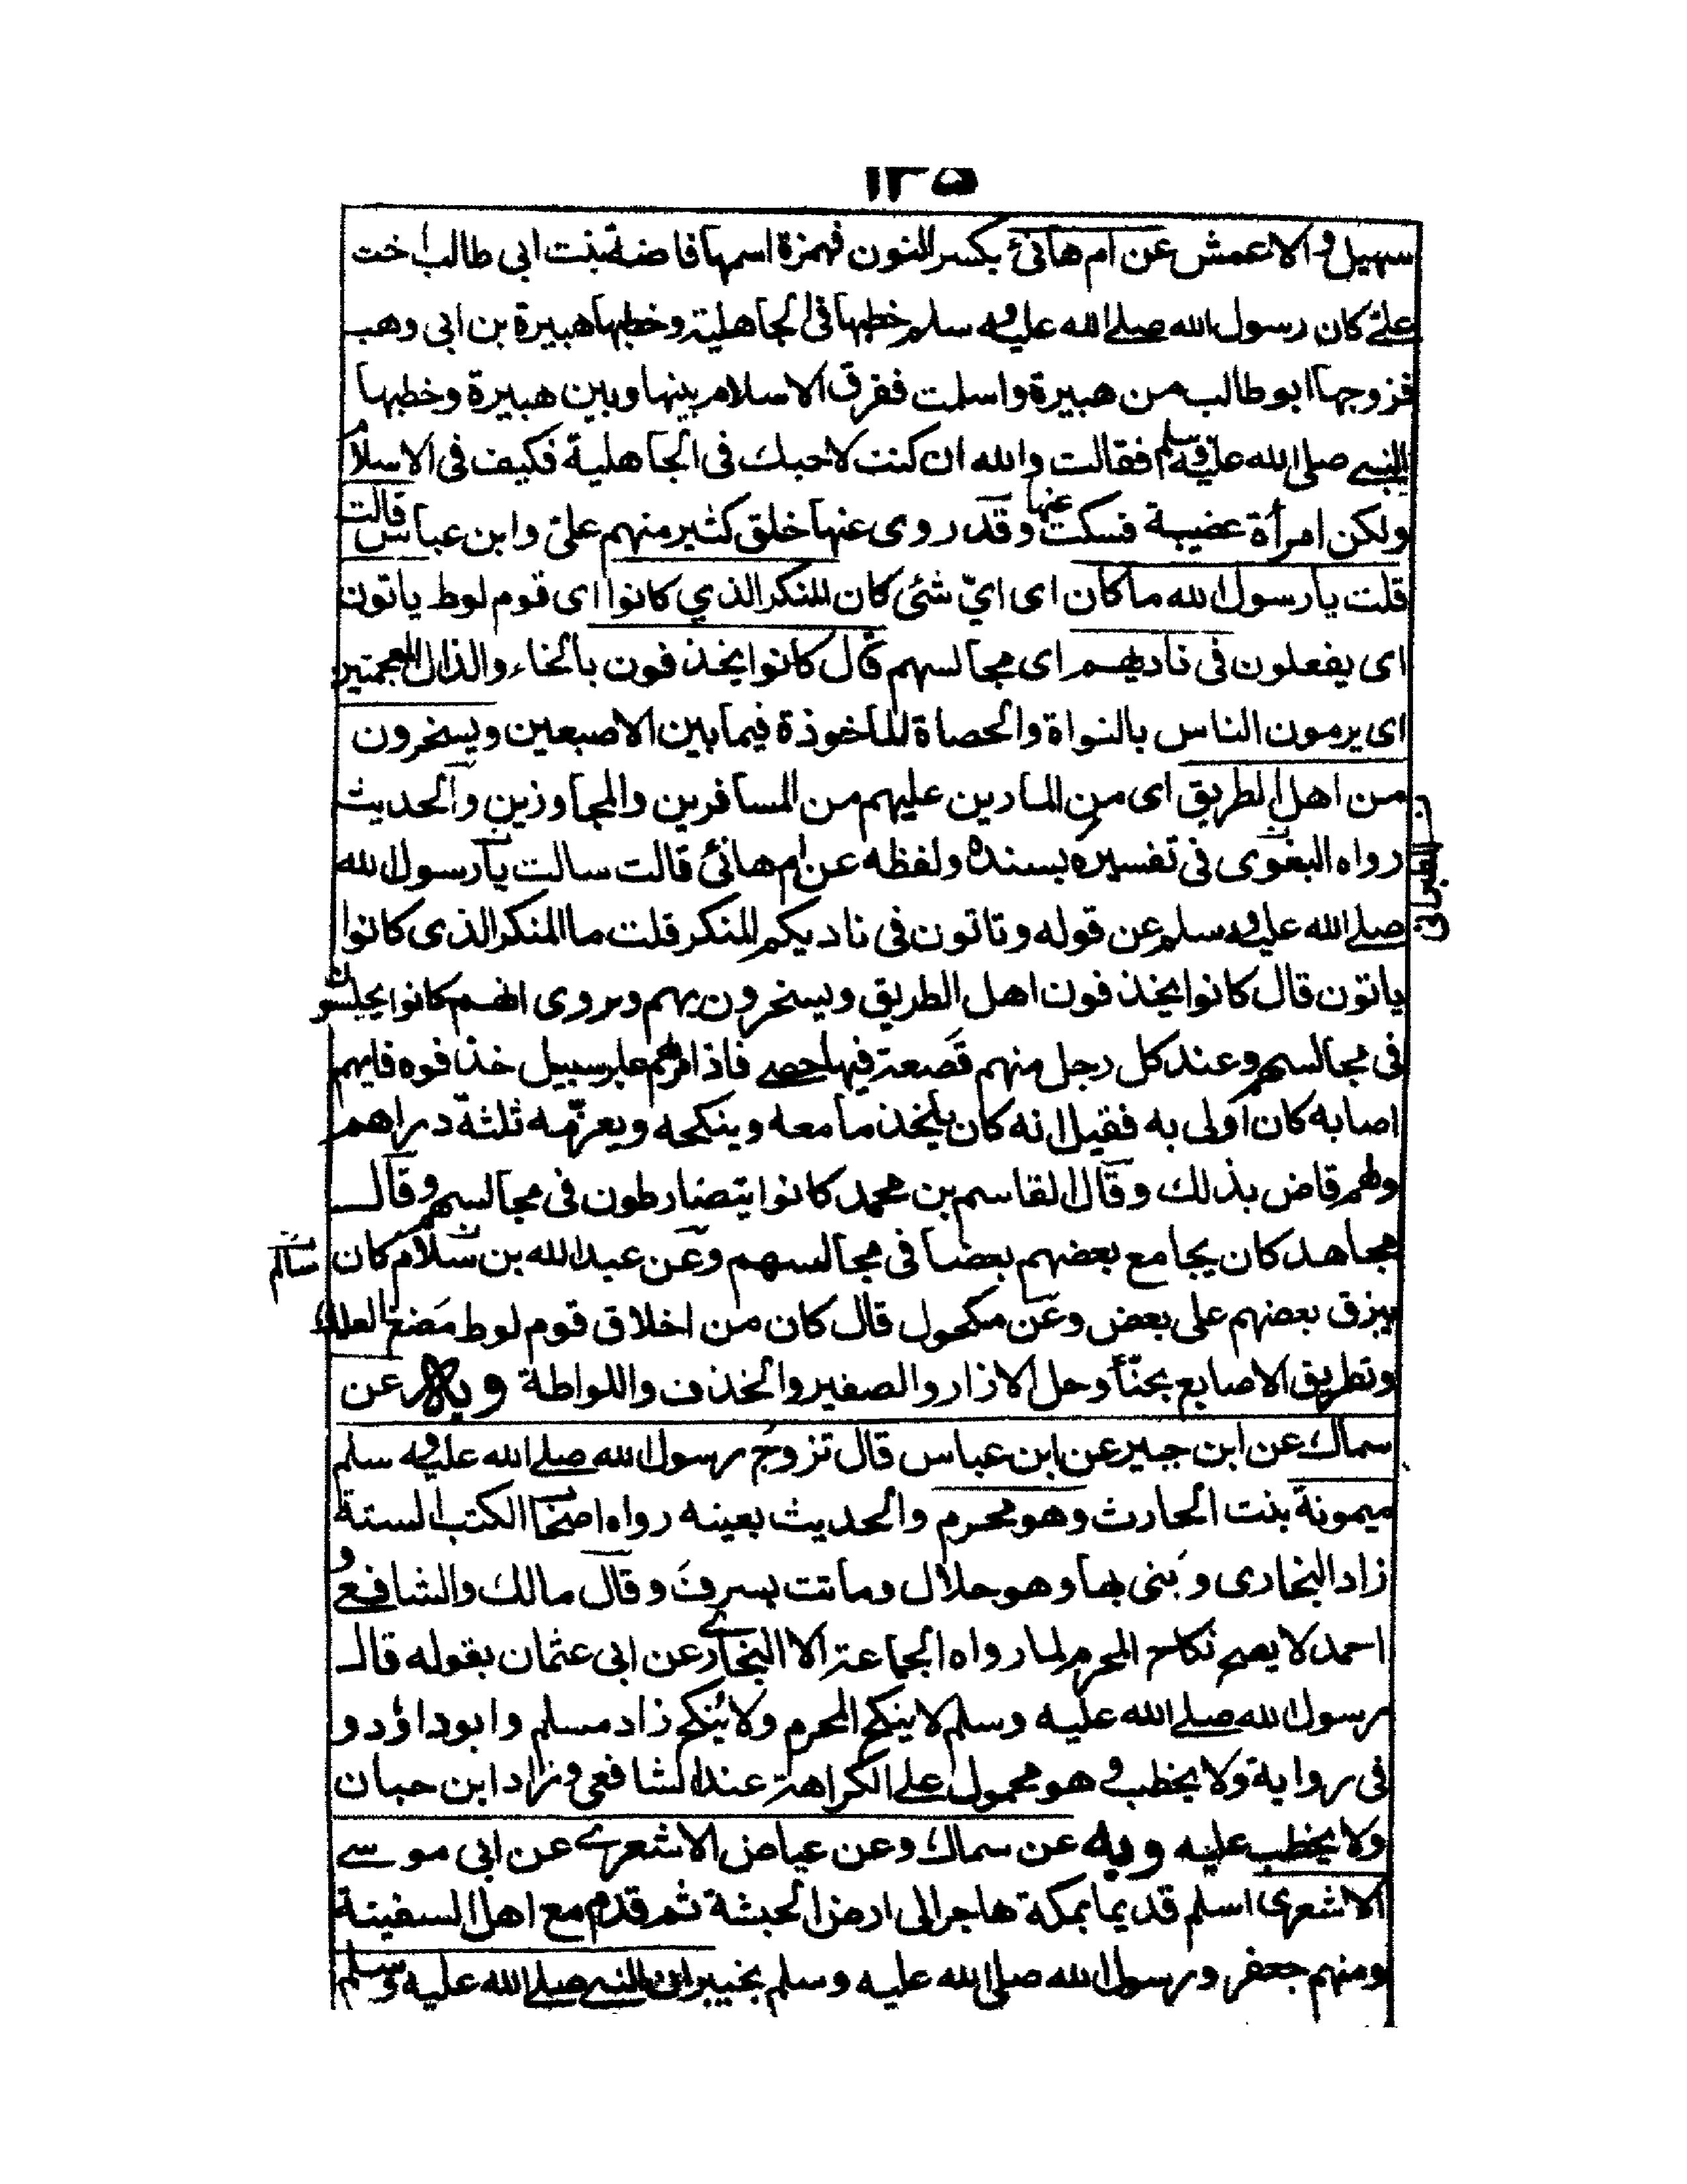 ١٢٥
سهيل والاعمش عن ام هانئ بكسر النون فهمزة اسمها فاضة بنت ابى طالب اخت
علىّ كان رسول الله صلى الله عليه و سلم خطبها فى الجاهلية وخطبها هبيرة بن ابى وهب
فزوجها ابو طالب من هبيرة واسلمت ففرق الاسلام بينها وبين هبيرة وخطبها
النبى صلى الله عليه وسلم فقالت والله ان كنت لاحبك فى الجاهلية فكيف فى الاسلام
ولكن امرأة عضيبة فسكت عنها وقد روى عنها خلق كثير منهم على وابن عباس قالت
قلت يا رسول الله ما كان اى اىّ شئ كان المنكر الذي كانوا اى قوم لوط ياتون
اى يفعلون فى ناديهم اى مجالسهم قال كانوا يخذفون بالخاء والذال المعجمتين
اى يرمون الناس بالنواة والحصاة الماخوذة فيما بين الاصبعين ويسخرون
من اهل الطريق اى من المارين عليهم من المسافرين والمجاوزين والحديث
رواه البغوى فى تفسيره بسنده ولفظه عن ام هانئ قالت سالت يا رسول الله
صلى الله عليه و سلم عن قوله وتاتون فى ناديكم المنكر قلت ما المنكر الذى كانوا
ياتون قال كانوا يخذفون اهل الطريق ويسخرون بهم ويروى انهم كانوا يجلسون
فى مجالسهم وعند كل رجل منهم قصعة فيها حصى فاذا مر بهم عابر سبيل خذفوه فايهم
اصابه كان اولى به فقيل انه كان ياخذ ما معه وينكحه ويغرّمه ثلثة دراهم
ولهم قاض بذلك وقال القاسم بن محمد كانوا يتضارطون فى مجالسهم وقال
مجاهد كان يجامع بعضهم بعضا فى مجالسهم وعن عبد الله بن سلام كان
يبزق بعضهم على بعض وعن مكحول قال كان من اخلاق قوم لوط مضغ العلك
وتطريق الاصابع بحنّأ وحل الازار والصفير والخذف واللواطة وبه عن
سماك عن ابن جبير عن ابن عباس قال تزوج رسول الله صلى الله عليه و سلم
ميمونة بنت الحارث وهو محرم والحديث بعينه رواه اصحا الكتب الستة
زاد البخارى وبنى بها وهو حلال وماتت بسرف وقال مالك والشافعى و
احمد لا يصح نكاح المحرم لما رواه الجماعة الا البخارى عن ابى عثمان بقوله قال
رسول الله صلى الله عليه وسلم لا ينكح المحرم ولا يُنكح زاد مسلم وابو داؤد و
فى رواية ولا يخطب و هو محمول على الكراهة عند الشافعى وزاد ابن حبان
ولا يخطب عليه وبه عن سماك وعن عياض الاشعرى عن ابى موسى
الاشعرى اسلم قديما بمكة هاجر الى ارض الحبشة ثم قدم مع اهل السفينة
ومنهم جعفر ورسول الله صلى الله عليه وسلم بخيبر ان النبى صلى الله عليه وسلم
سالم